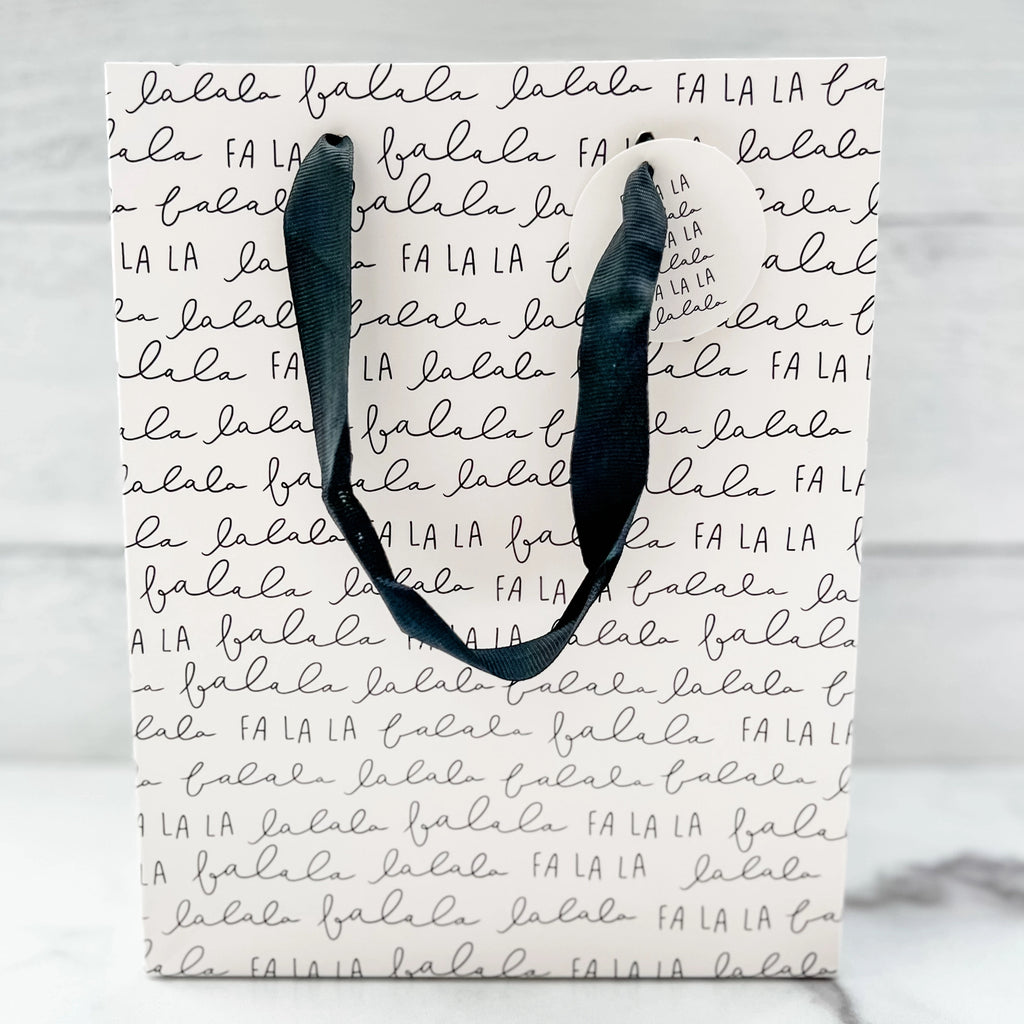 lalala falala lalala FA LA LA fa
ala FA LA falala FA lalala
a falala falala la
LA LA la a FA LA LA f alal
la lalala falala lal lala f
lalala FA LA lalala ala FA LA L
ala lalala falala f a lalala
lalala fa ala lalala lalala FA LA
la lalala A LA LA fal la FA LA LA f
falala lalala FA LA LA falala la
A LA falala FA LA LA falala falala
a falala lalala falala lalala f
lala FA LA LA falala falala FA LA LA
a falala lalala falala falala l
A LA LA lalala falala FA LA LA fala
LA falala lalala FA LA LA lalala
lalala falala lalala FA LA LA fa
lala FA LA LA falala FA LA LA lalala
FA LA
lala
A LA
lala
A LA LA
lalala